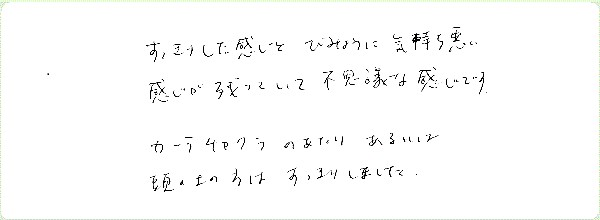 すっきりした感じと びみょうに 気持ち悪い
感じが 残っていて 不思議な 感じです
カーテ チャクラ のあたり あるいは
頭の上の方は すっきりしました.